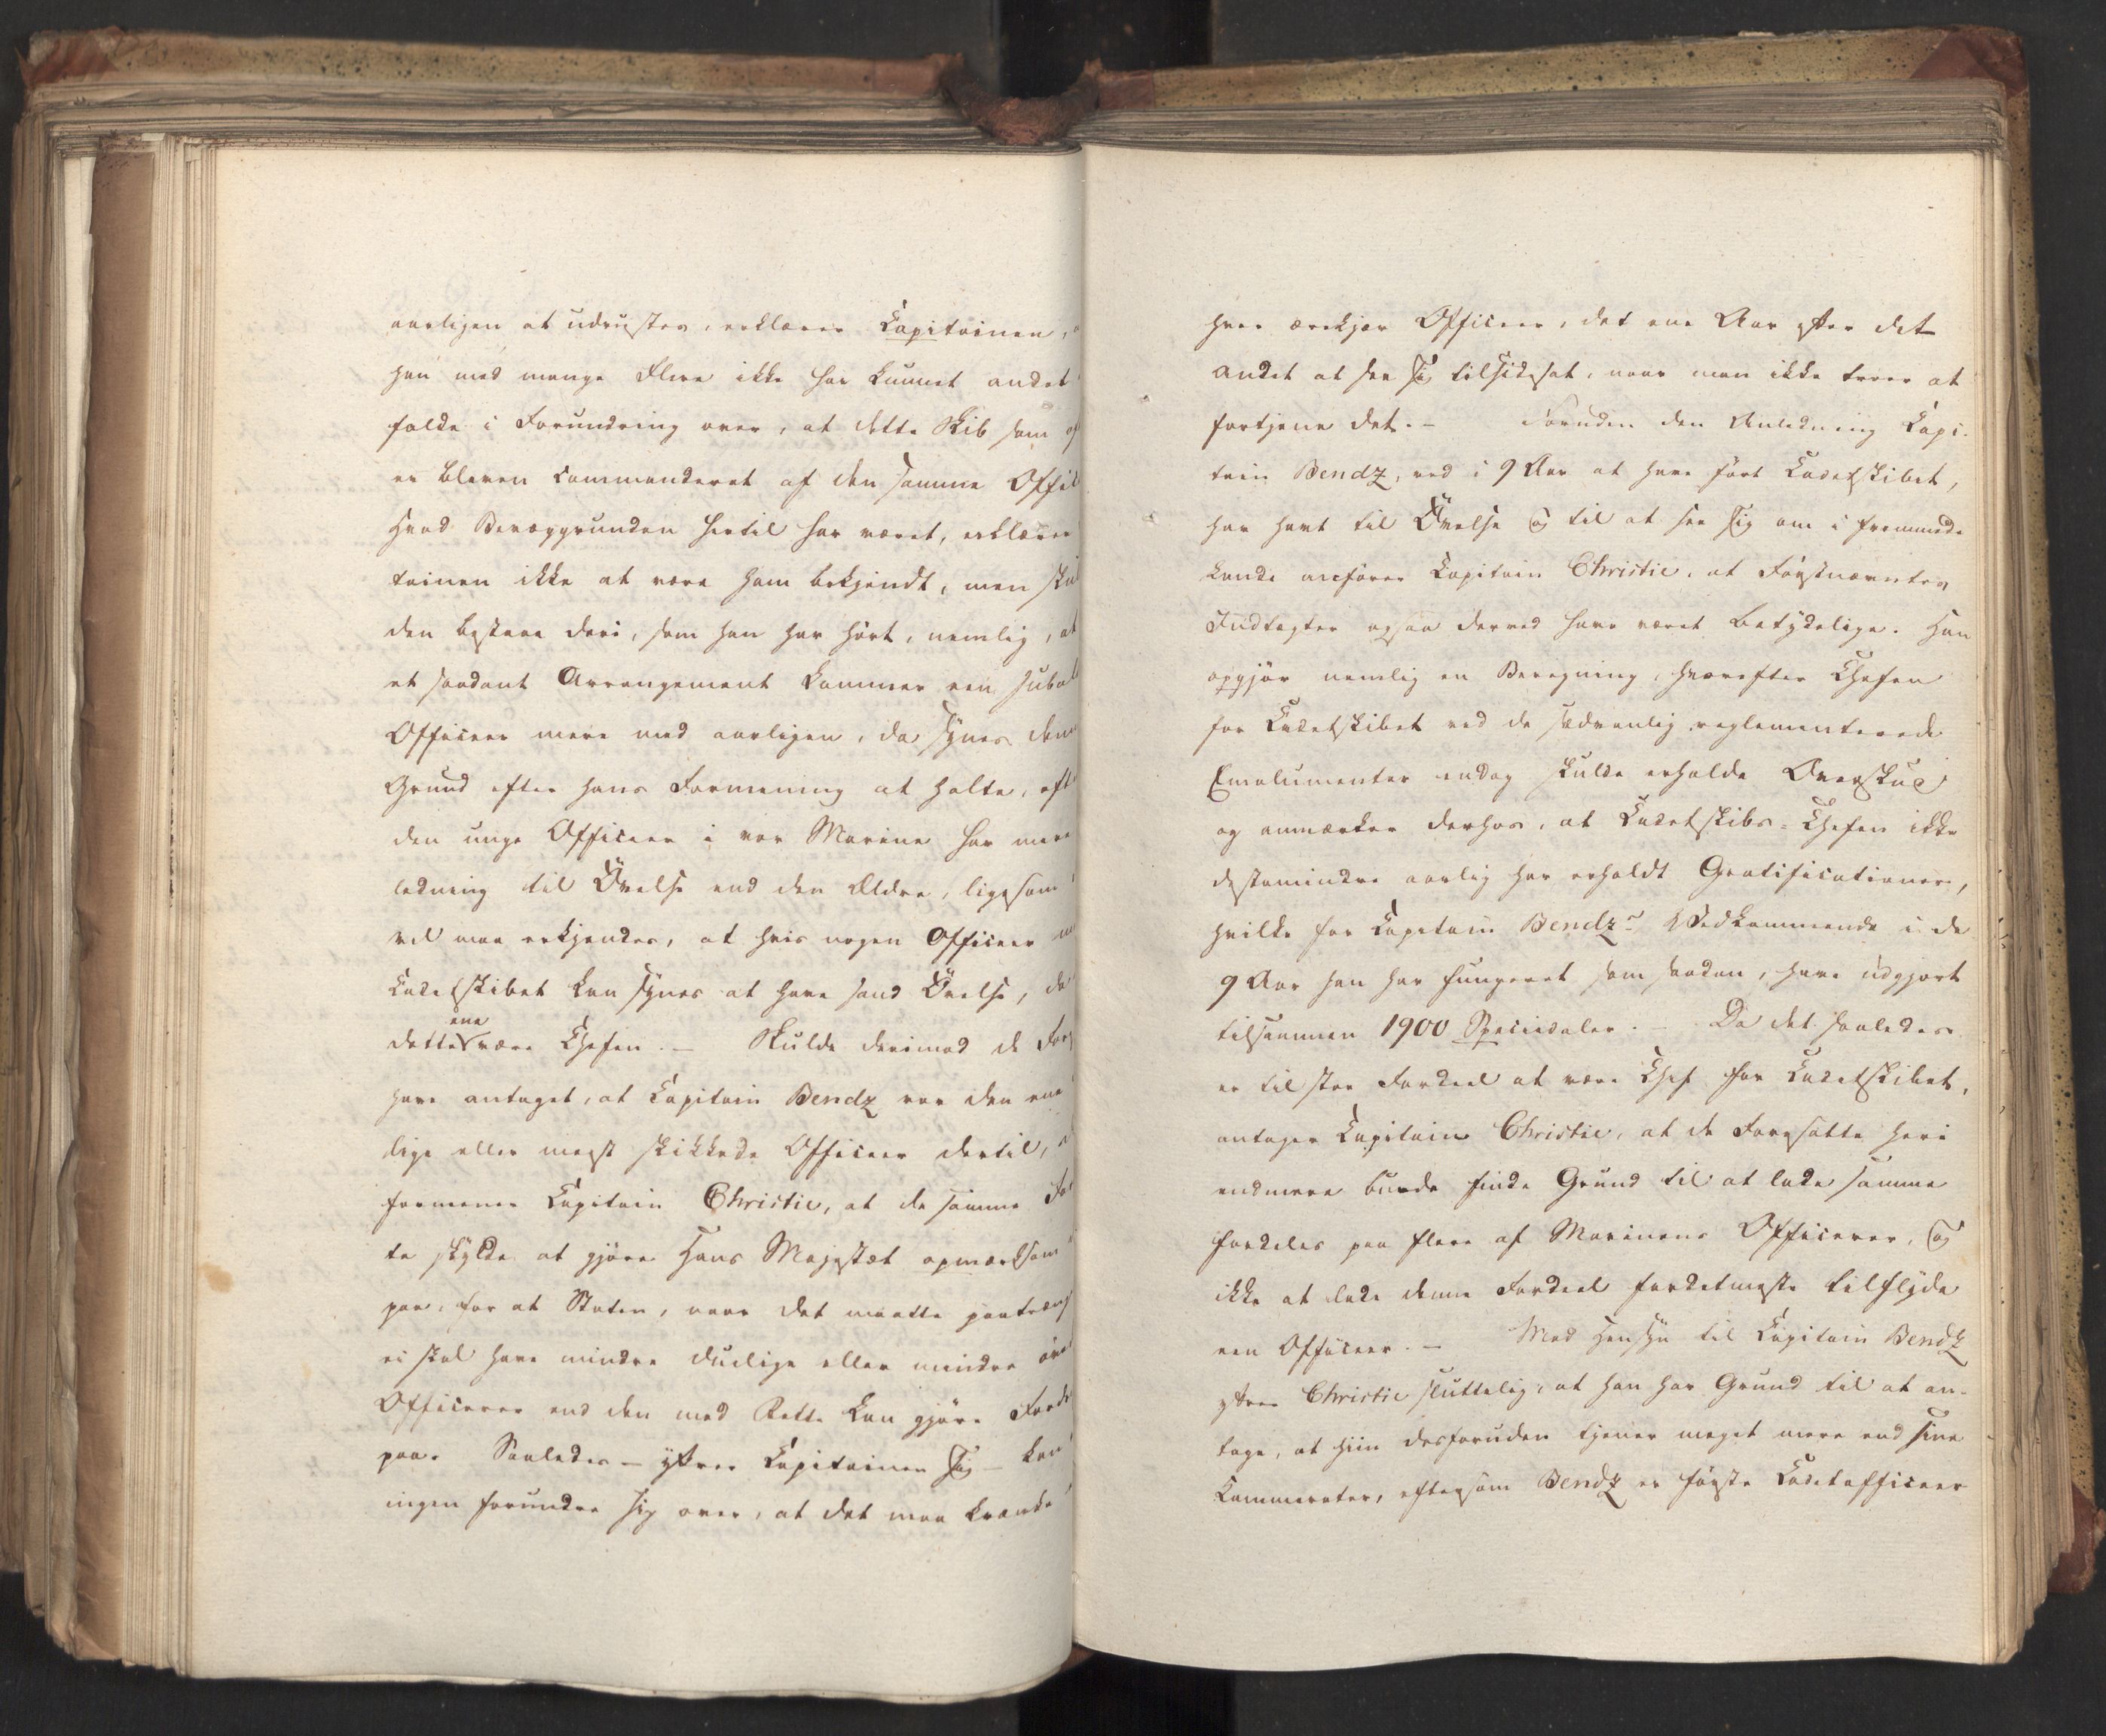 aarligen at udrustes, erklærer Capitainen,
han med mange Flere ikke har kunnet andet
falde i Forundring over, at dette Skib som
er bleven commanderet af den samme Offic
Hvad Bevæggrunden hertil har været, erklærer
tainen ikke at være ham bekjendt, men skul
den bestaae deri, som han har hört, nemlig, at
et saadant Arrangement kommer een Subalt
Officeer mere med aarligen, da synes denne
Grund efter hans Formening at halte, eft
den unge Officeer i vor Marine har mere
ledning til Övelse end den Ældre, ligesom
vel maa erkjendes, at hvis nogen Officeer
Cadetskibet kan synes at have sand Övelse, da
dette ene være Chefen. — Skulde derimod de Fore
have antaget, at Capitain Bendz var den ene
lige eller meest skikkede Officeer dertil,
formener Capitain Christie, at de samme For
te skylde at gjöre Hans Majestæt opmærksom
paa, for at Staten, naar det maatte paatrænges
ei skal have mindre duelige eller mindre öve
Officerer end den med Rette kan gjöre Fordr
paa. Saaledes — yttrer Capitainen sig — kan
ingen forundre sig over, at det maa krænke
hver ærekjær Officeer, det ene Aar efter det
andet at see sig tilsidesat, naar man ikke troer at
fortjene det. — Foruden den Anledning Capi-
tain Bendz, ved i 9 Aar at have fört Cadetskibet,
har havt til Övelse og til at see sig om i fremmede
Lande anförer Capitain Christie, at Förstnævntes
Indtægter ogsaa derved have været betydelige. Han
opgjör nemlig en Beregning, hvorefter Chefen
for Cadetskibet ved de sædvanlig reglementerede
Emolumenter endog skulde erholde Overskud
og anmærker derhos, at Cadetskibs-Chefen ikke
destomindre aarlig har erholdt Gratificationer,
hvilke for Capitain Bendz's Vedkommende i de
9 Aar han har fungeret som saadan, have udgjort
tilsammen 1900 Speciedaler. — Da det saaledes
er til stor Fordeel at være Chef for Cadetskibet,
antager Capitain Christie, at de Foresatte heri
endmere burde finde Grund til at lade samme
fordeles paa flere af Marinens Officerer, og
ikke at lade denne Fordeel fordetmeste tilflyde
een Officeer. — Med Hensyn til Capitain Bendz
yttrer Christie sluttelig, at han har Grund til at an-
tage, at hiin desforuden tjener meget mere end sine
Kammerater, eftersom Bendz er förste Cadetofficeer